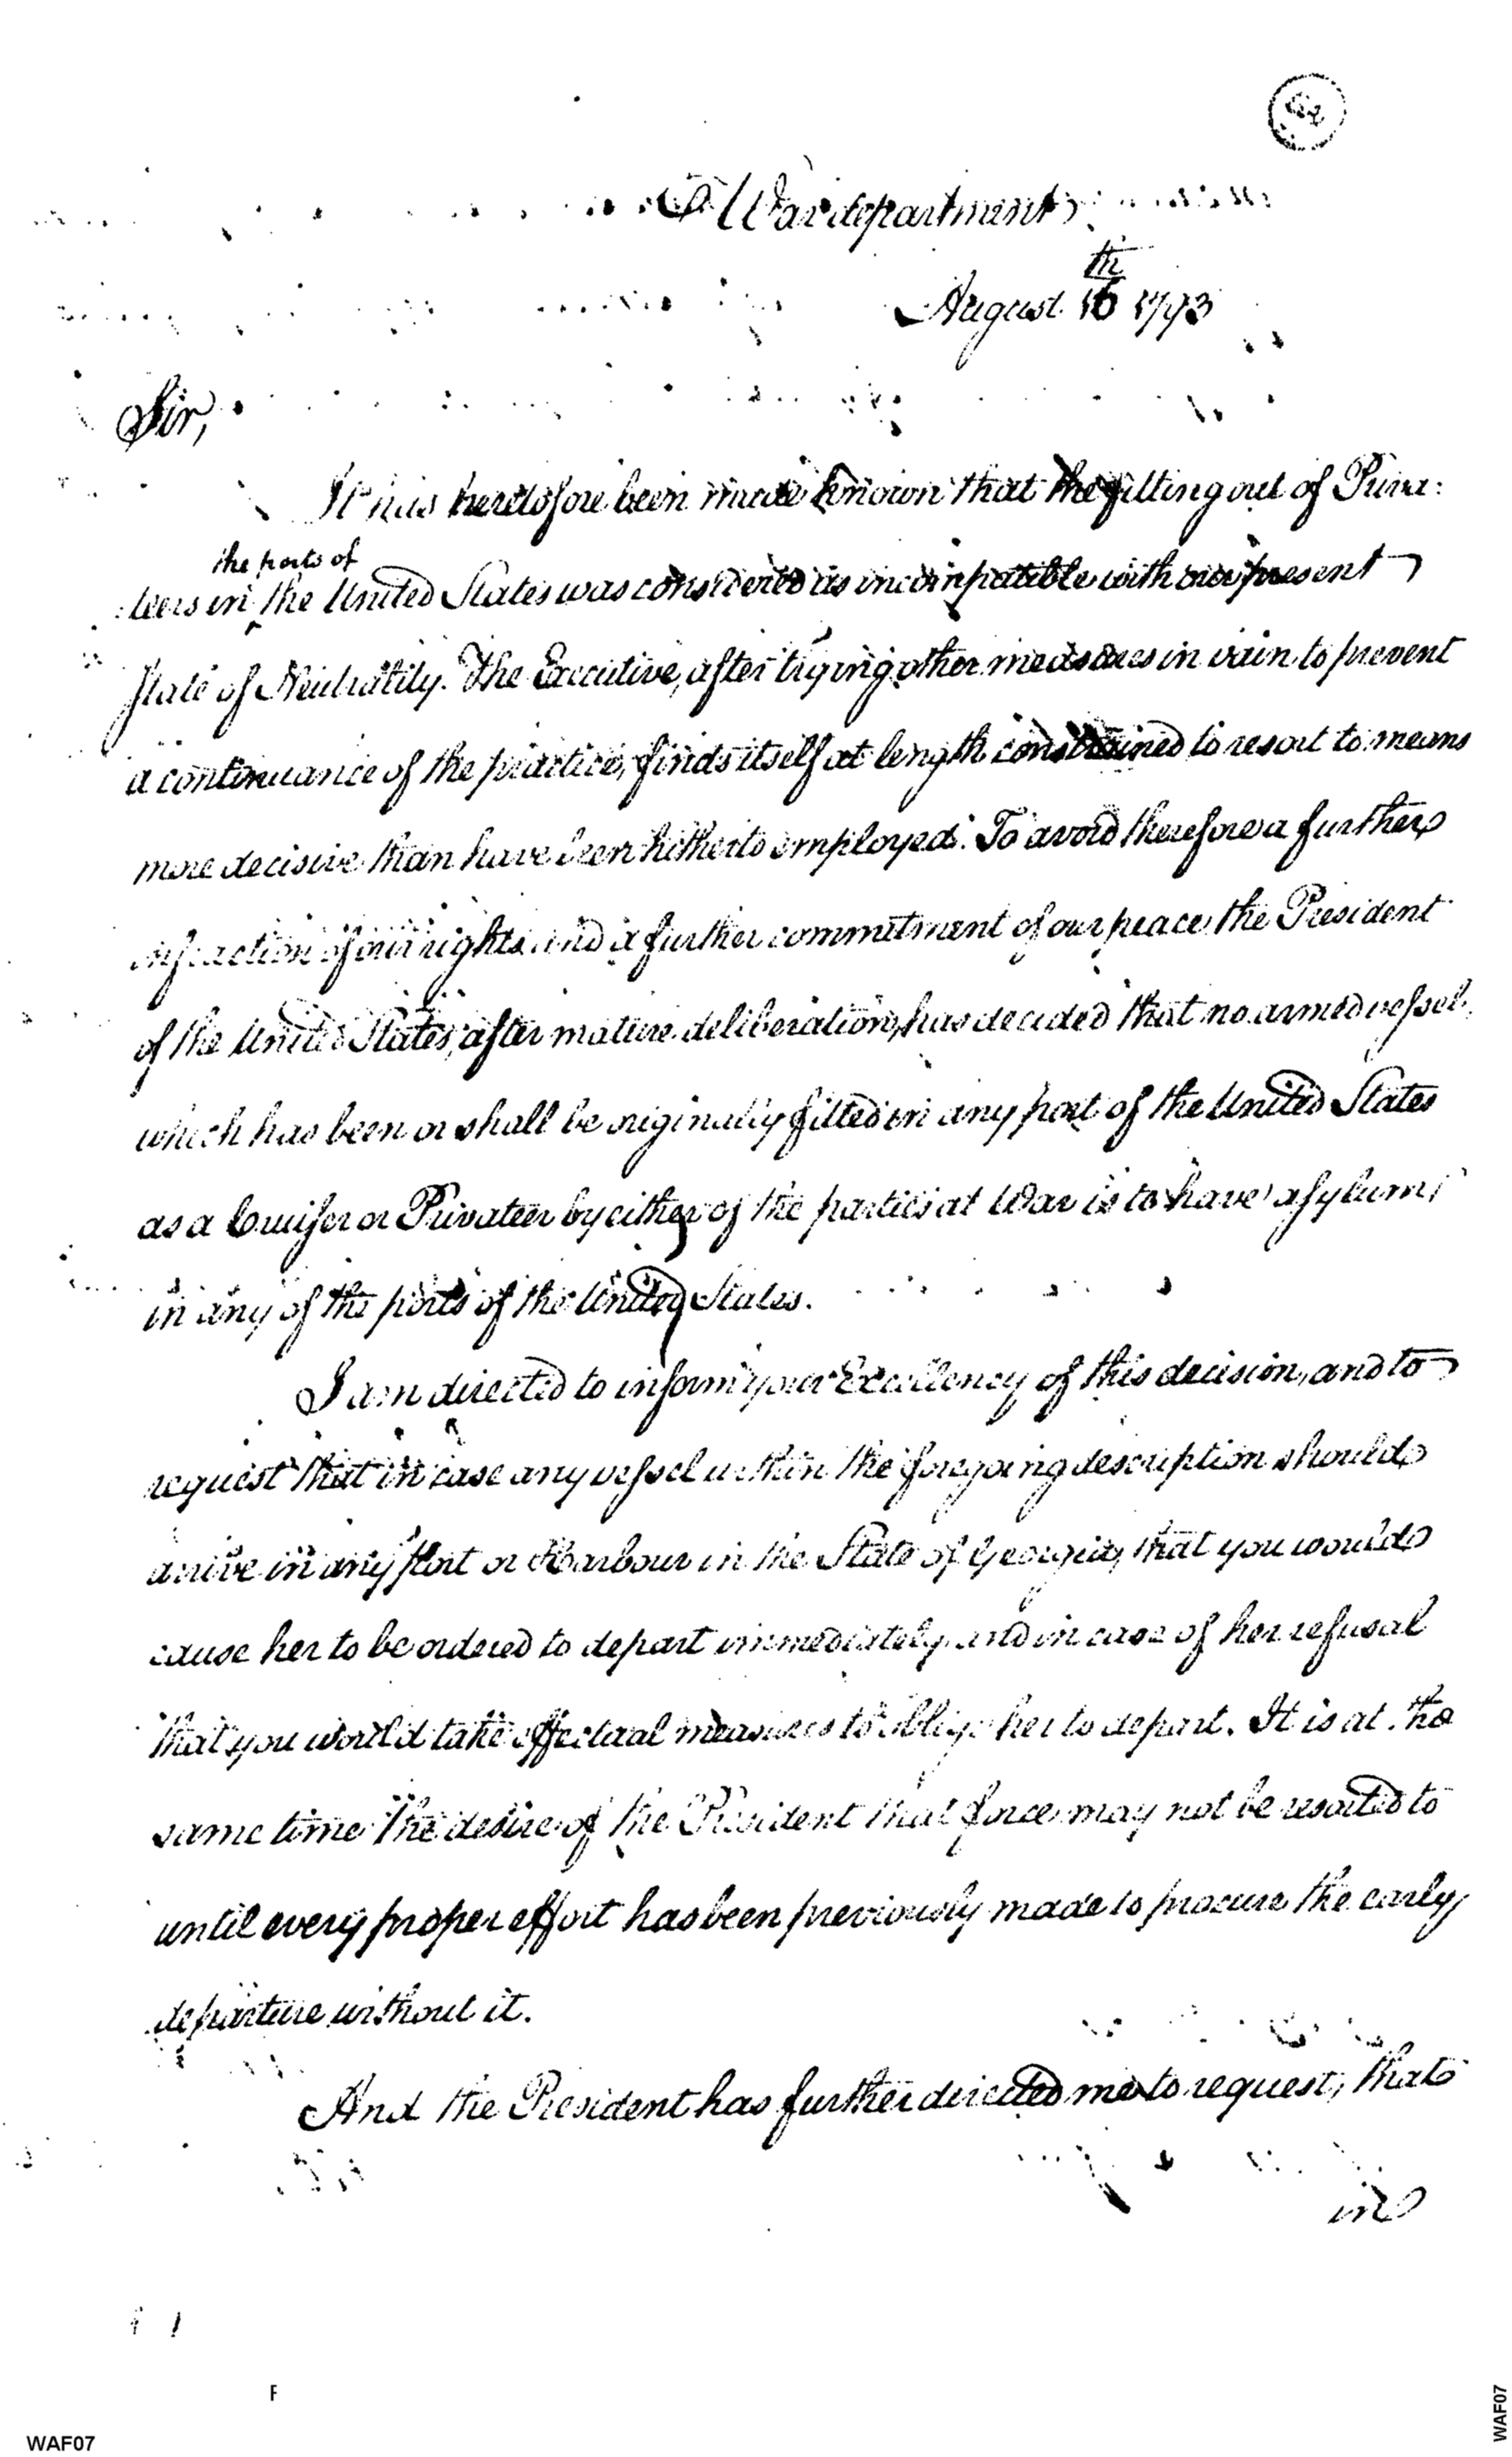 War department
August 16th 1793
Sir,
It has heretofore been made known that the fitting out of Priva:
the ports of
:teers in the United States was considered as incompatible with our present
state of Neutrality. The Executive, after trying other measures in vain to prevent
a continuance of the practice, finds itself at length constrained to resort to means
more decisive than have been hitherto employed. To avoid therefore a further
infraction of our rights and a further commitment of our peace the President
of the United States, after mature deliberation, has decided that no armed vessel
which has been or shall be originally fitted in any port of the United States
as a Cruiser or Privateer by either of the parties at War is to have asylum
in any of the ports of the United States.
I am directed to inform your Excellency of this decision, and to
request that in case any vessel within the foregoing description should
arrive in any Port or Harbour in the State of Georgia, that you would
cause her to be ordered to depart immediately and in case of her refusal
that you would take effectual measures to oblige her to depart. It is at the
same time the desire of the President that force may not be resorted to
until every proper effort has been previously made to procure the early
departure without it.
And the President has further directed me to request, that
in
F
WAF07
WAF07